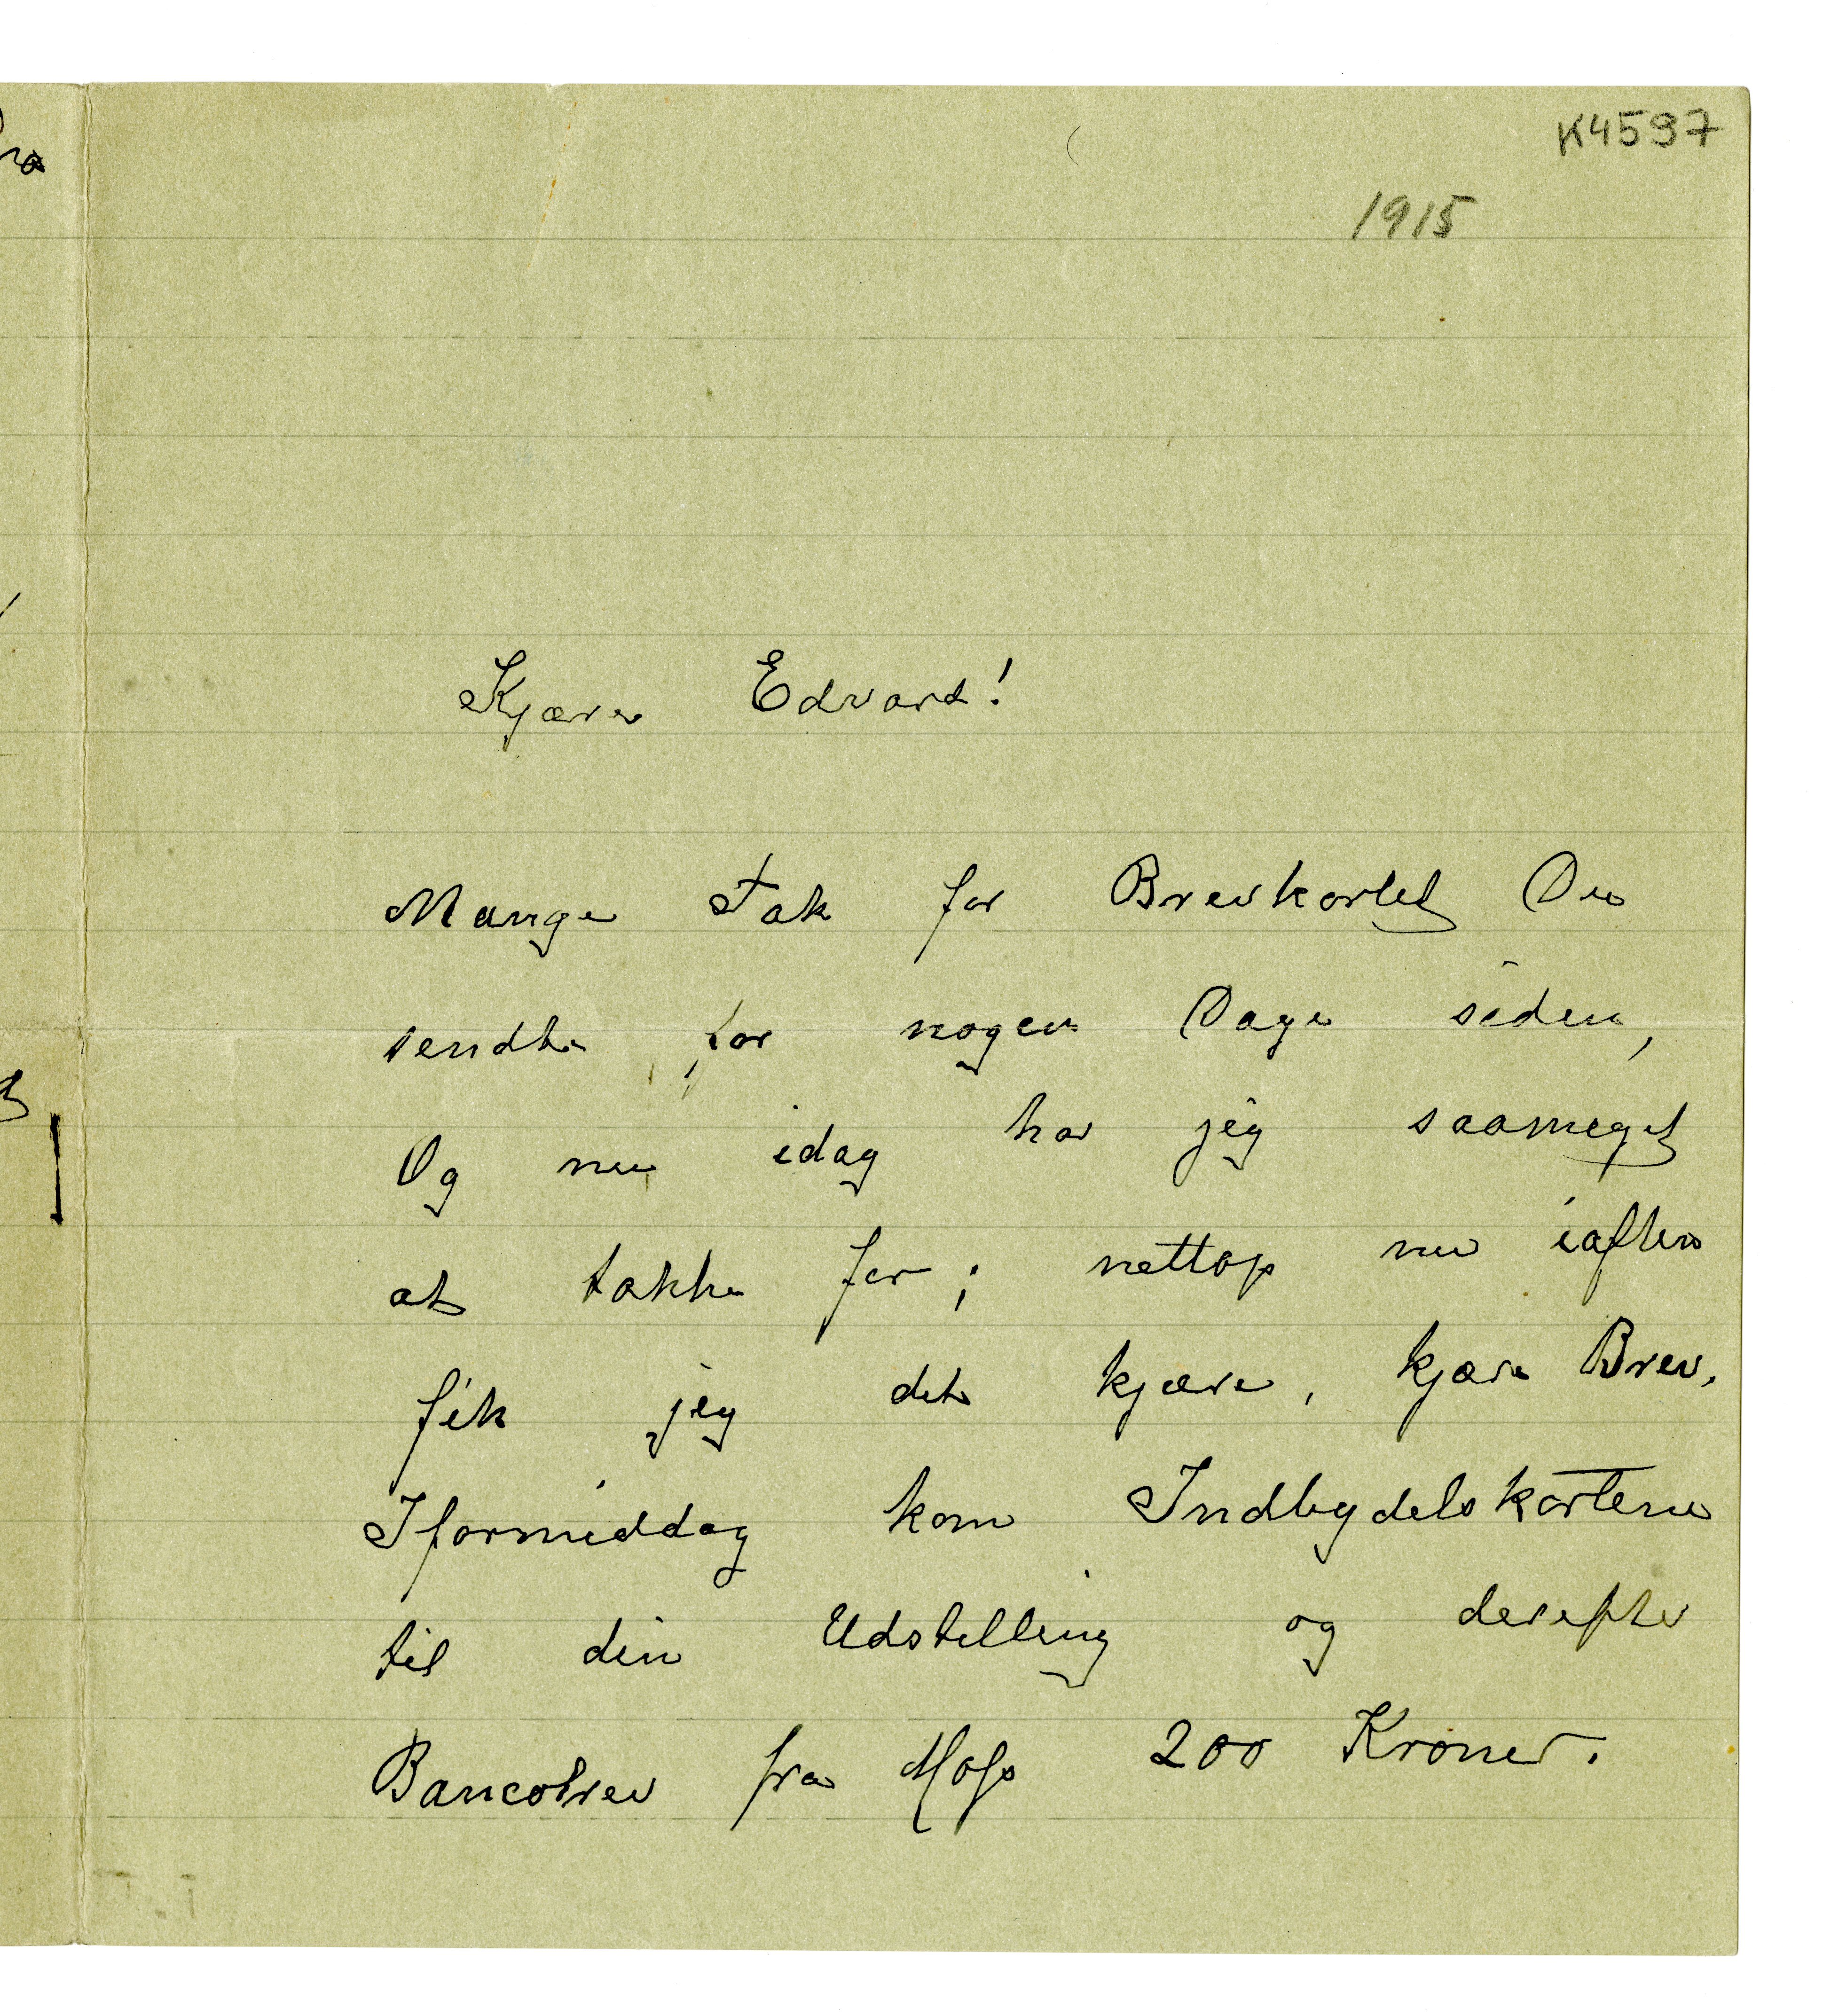 K4597
1915
Kjære Edvard!
Mange Tak for Brevkortet Du
sendte for nogen Dage siden,
Og nu idag har jeg saameget
at takke for; nettop nu iaften
fik jeg det kjære, kjære Brev,
Iformiddag kom Indbydelskortene
til din Udstilling og derefter
Bancobrev fra Moss 200 Kroner.